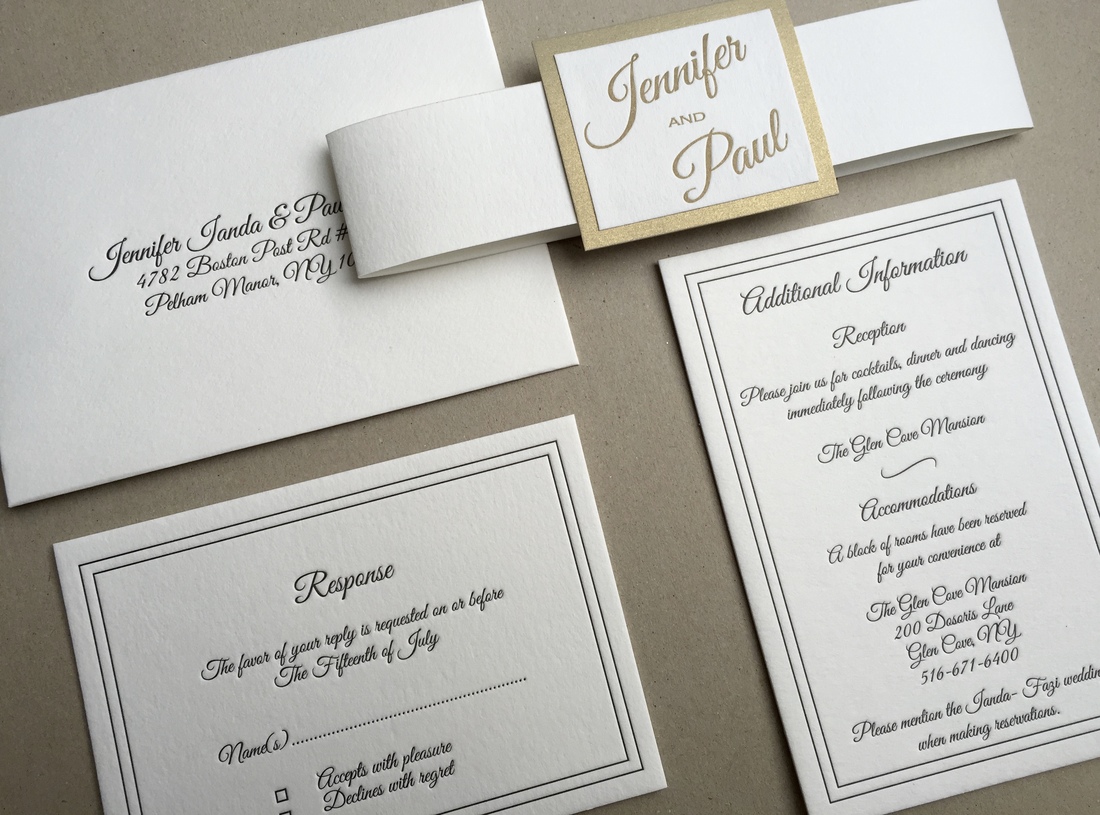 Jennifer
AND
Paul
Jennifer Janda & Pau
4782 Boston Post Rd #
Pelham Manor, NY 10
Additional Information
Reception
Please join us for cocktails, dinner and dancing
immediately following the ceremony
The Glen Cove Mansion
Accommodations
A block of rooms have been reserved
for your convenience at
The Glen Cove Mansion
200 Dosoris Lane
Glen Cove, NY
516-671-6400
Please mention the Janda- Fazi weddin
when making reservations.
Response
The favor of your reply is requested on or before
The Fifteenth of July
Name(s)
Accepts with pleasure
Declines with regret